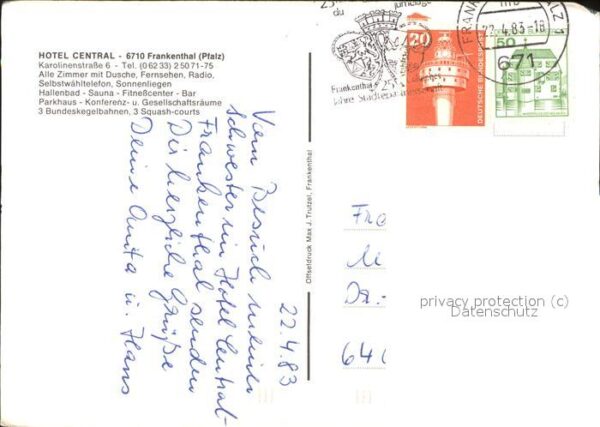 HOTEL CENTRAL - 6710 Frankenthal (Pfalz)
Karolinenstraße 6 - Tel. (06233) 25071-75
Alle Zimmer mit Dusche, Fernsehen, Radio,
Selbstwähltelefon, Sonnenliegen
Hallenbad - Sauna - Fitneßcenter - Bar
Parkhaus - Konferenz- u. Gesellschaftsräume
3 Bundeskegelbahnen, 3 Squash-courts
22.4.83
Vom Besuch meiner
Schwester im Hotel Central-
Frankenthal senden
Dir herzliche Grüße
Deine Anita u. Hans
Offsetdruck Max J. Trutzel, Frankenthal
25
du
Frankenthal
25
Jahre Städtepartnerschaft
20
DEUTSCHE BUNDESPOST
50
FRANKENTHAL
22.4.83-18
671
Fra
Dr.-
640
privacy protection (c)
Datenschutz